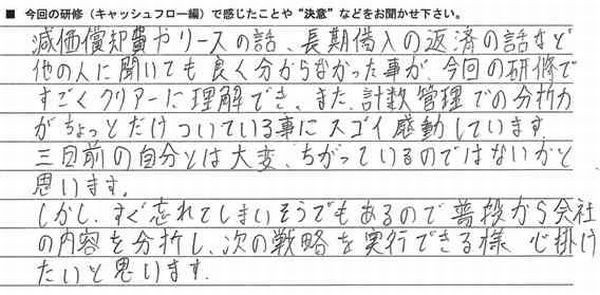 ■ 今回の研修（キャッシュフロー編）で感じたことや“決意”などをお聞かせ下さい。
減価償却費やリースの話、長期借入の返済の話など
他の人に聞いても良く分からなかった事が、今回の研修で
すごくクリアーに理解でき、また、計数管理での分析力
がちょっとだけついている事にスゴイ感動しています。
三日前の自分とは大変、ちがっているのではないかと
思います。
しかし、すぐ忘れてしまいそうでもあるので普段から会社
の内容を分析し、次の戦略を実行できる様 心掛け
たいと思います。